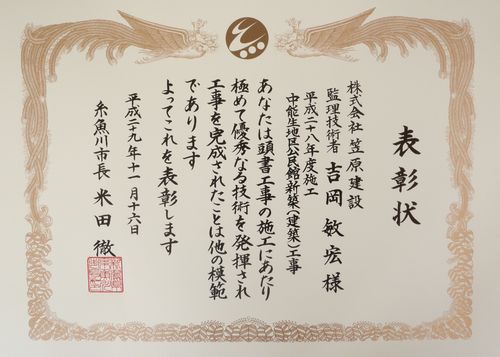 表彰状
株式会社 笠原建設
監理技術者 吉岡敏宏様
平成二十八年度施工
中能生地区公民館新築(建築)工事
あなたは頭書工事の施工にあたり
極めて優秀なる技術を発揮され
工事を完成されたことは他の模範
であります
よってこれを表彰します
平成二十九年十一月十六日
糸魚川市長 米田徹